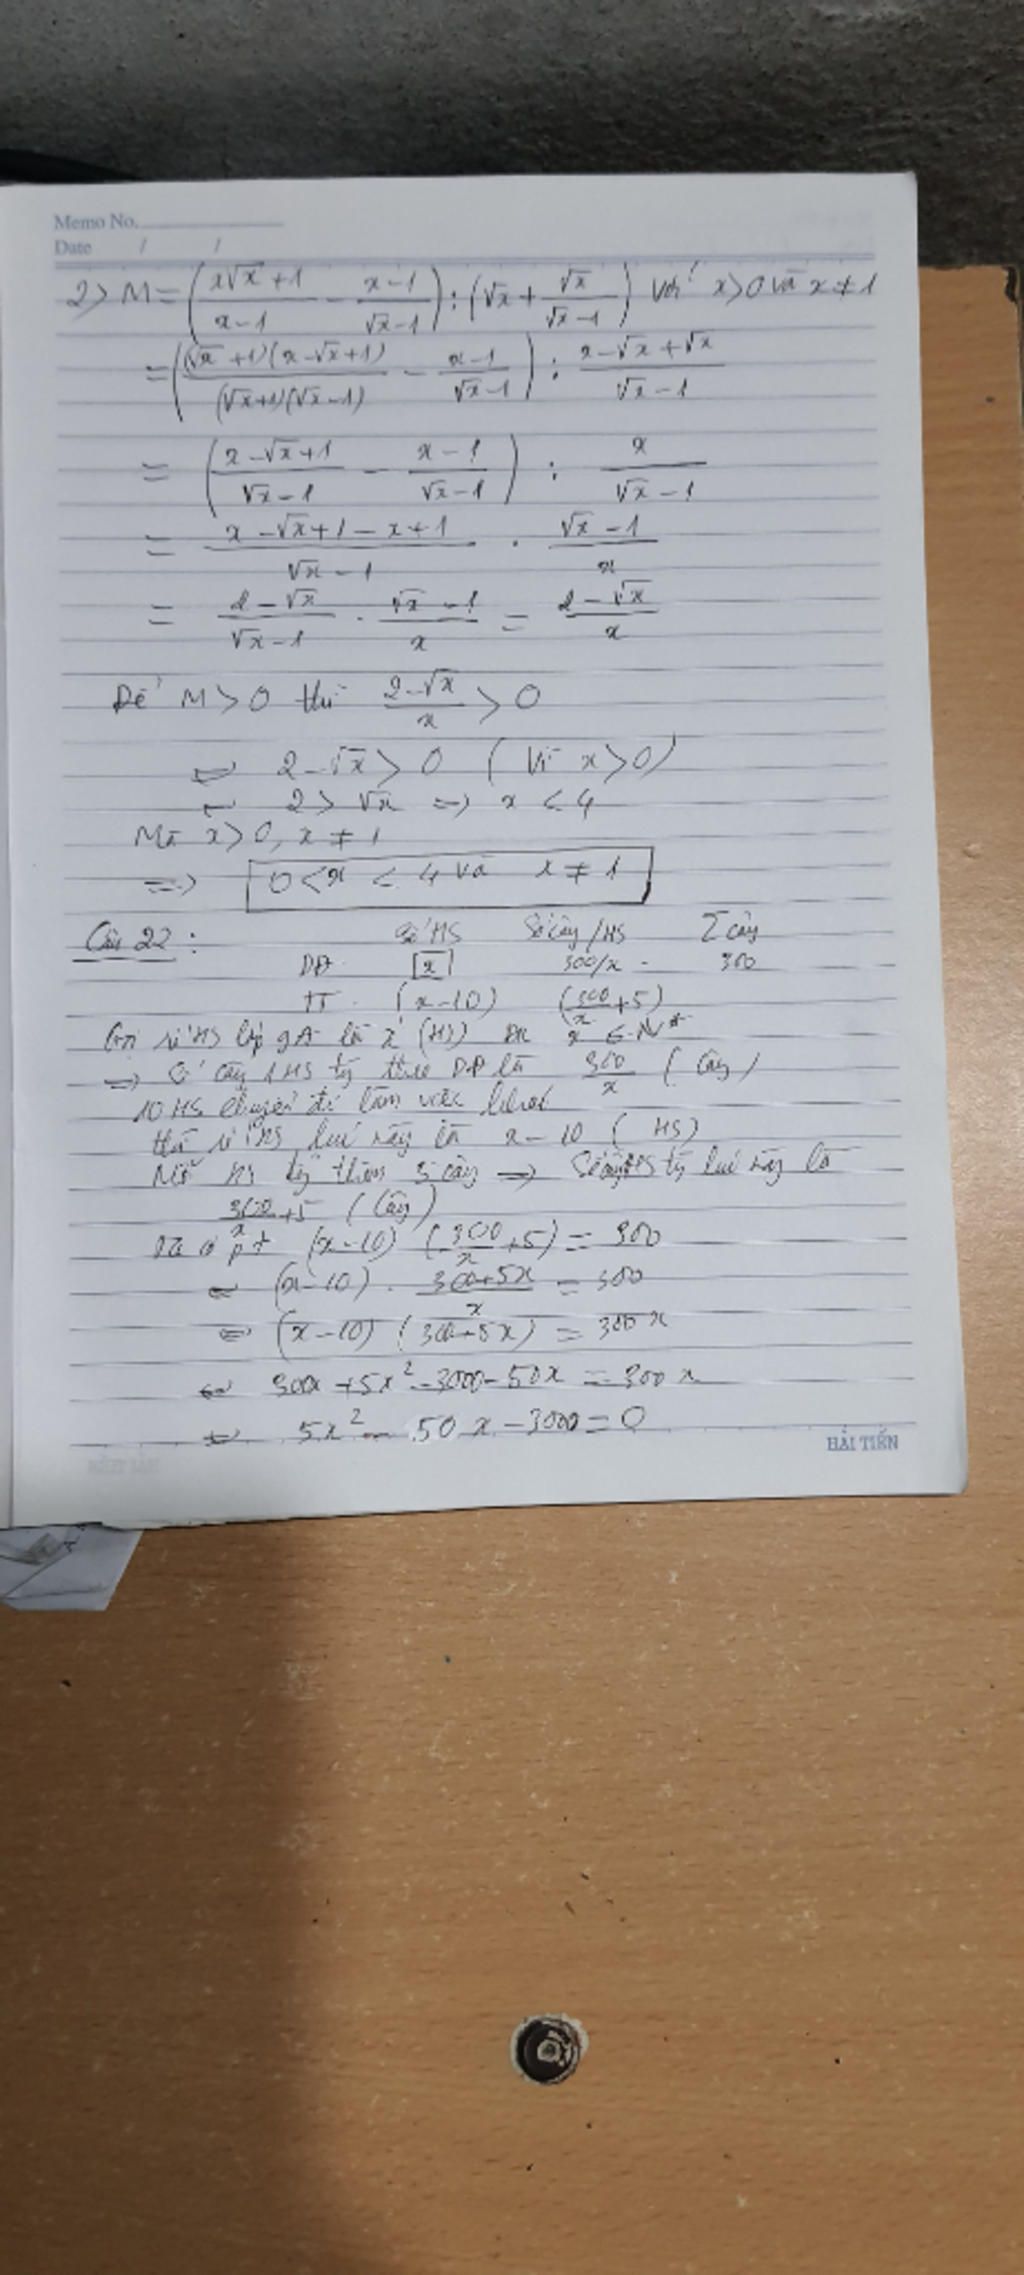 Memo No.
Date / /
2> M = (x√x + 1 / x - 1 - x - 1 / √x - 1) : (√x + √x / √x - 1) với x > 0 và x ≠ 1
= ((√x + 1)(x - √x + 1) / (√x + 1)(√x - 1) - x - 1 / √x - 1) : x - √x + √x / √x - 1
= (x - √x + 1 / √x - 1 - x - 1 / √x - 1) : x / √x - 1
= x - √x + 1 - x + 1 / √x - 1 . √x - 1 / x
= 2 - √x / √x - 1 . √x - 1 / x = 2 - √x / x
Để M > 0 thì 2 - √x / x > 0
⇔ 2 - √x > 0 (Vì x > 0)
⇔ 2 > √x => x < 4
Mà x > 0, x ≠ 1
=> 0 < x < 4 và x ≠ 1
Câu 22 : Số HS Số cây/HS Σ cây
DĐ x 300/x 300
TT (x - 10) (300/x + 5)
Gọi số HS lớp 9A là x (HS) ĐK x ∈ N*
=> Số cây 1 HS trồng theo DĐ là 300/x (Cây)
10 HS chuyển đi làm việc khác
thì số HS lúc này là x - 10 (HS)
Mỗi HS thêm 5 cây => lúc này là
300/x + 5 (Cây)
Ta có pt (x - 10) (300/x + 5) = 300
⇔ (x - 10) . 300 + 5x / x = 300
⇔ (x - 10) (300 + 5x) = 300x
⇔ 300x + 5x² - 3000 - 50x = 300x
⇔ 5x² - 50x - 3000 = 0
HẢI TIẾN